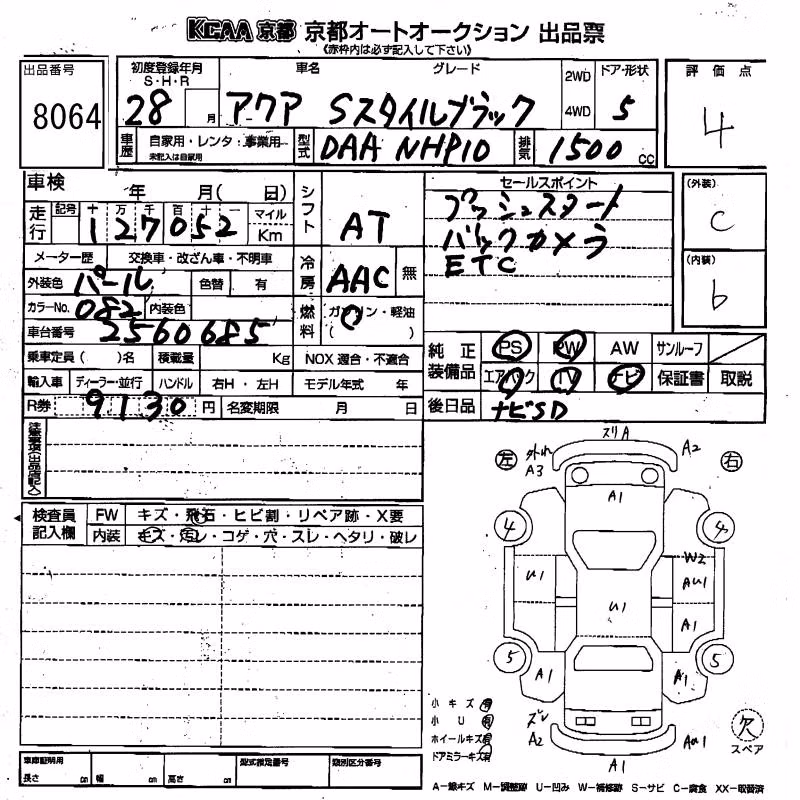 KCAA 京都 京都オートオークション 出品票
《赤枠内は必ず記入して下さい》
出品番号
8064
初度登録年月
S・H・R
28 月
車名 グレード
アクア Sスタイルブラック
2WD
4WD
ドア・形状
5
評価点
4
車歴 自家用・レンタ・事業用
未記入は自家用
型式 DAA NHP10
排気 1500 cc
車検 年 月( 日)
シフト AT
走行 記号 十 万 千 百 十 一
127052
マイル
Km
メーター歴 交換車・改ざん車・不明車
冷房 AAC 無
外装色 パール 色替 有
カラーNo. 082 内装色
燃料 ガソリン・軽油
( )
車台番号 2560685
乗車定員( )名 積載量 Kg NOX 適合・不適合
輸入車 ディーラー・並行 ハンドル 右H・左H モデル年式 年
R券 9130 円 名変期限 月 日
セールスポイント
プッシュスタート
バックカメラ
ETC
(外装)
C
(内装)
b
純正装備品 PS PW AW サンルーフ
エアバック TV ナビ 保証書 取説
後日品 ナビSD
注意事項(出品店記入)
検査員記入欄 FW キズ・飛石・ヒビ割・リペア跡・X要
内装 キズ・汚レ・コゲ・穴・スレ・ヘタリ・破レ
左 右
外れ
A3
スリA
A2
A1
4 4
W2
U1 U1 AU1
A1
5 5
A1 A1
小キズ 有
小U 有
ホイールキズ 有
ドアミラーキズ 有
ズレ
A2
A1
AU1
欠
スペア
車庫証明用
長さ cm 幅 cm 高さ cm
型式指定番号
類別区分番号
A―線キズ M―調整跡 U―凹み W―補修跡 S―サビ C―腐食 XX―取替済